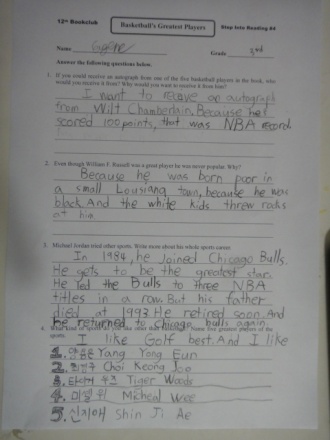 12th Bookclub
Basketball's Greatest Players
Step Into Reading #4
Name Gene
Grade 3rd
Answer the following questions below.
1. If you could receive an autograph from one of the five basketball players in the book, who
would you receive it from? Why would you want to receive it from him?
I want to receve an autograph
from Wilt Chamberlain, Because he
scored 100 points, that was NBA record.
2. Even though William F. Russell was a great player he was never popular. Why?
Because he was born poor in
a small Lousiana town, because he was
black And the white kids threw rocks
at him.
3. Michael Jordan tried other sports. Write more about his whole sports career.
In 1984, he Joined Chicago Bulls.
He gets to be the greatest star.
He led the Bulls to three NBA
titles in a row. But his father
died at 1993 He retired soon. And
he returned to Chicago bulls again.
4. What kind of sports do you like other than basketball? Name five greatest players of the
sports.
I like Golf best. And I like
1. 양용은 Yang Yong Eun
2. 최경주 Choi Keong Joo
3. 타이거 우즈 Tiger Woods
4. 미셸 위 Micheal Wee
5. 신지애 Shin Ji Ae